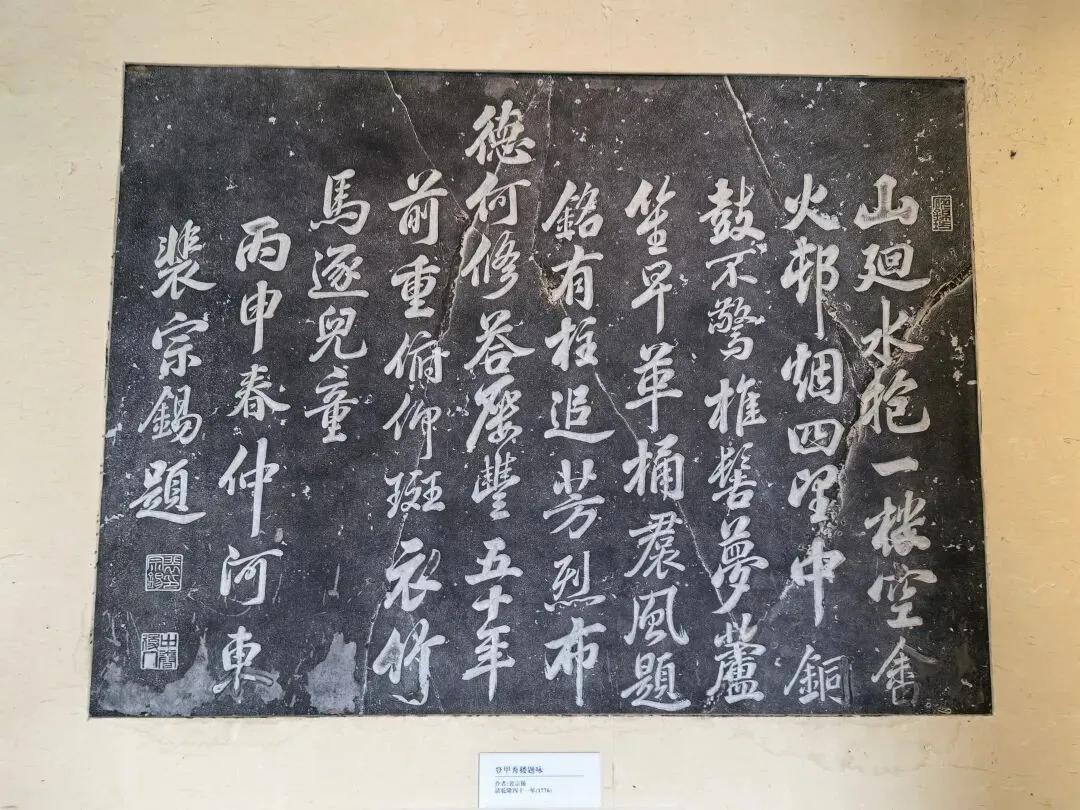 山廻水抱一樓空畬
火邨烟四望中銅
鼓不驚椎髻夢蘆
笙早革桶裠風題
銘有柱追芳烈布
德何修荅屢豐五十年
前重俯仰斑衣竹
馬逐兒童
丙申春仲河東
裴宗錫題
登甲秀楼题咏
作者:裴宗锡
清乾隆四十一年(1776)